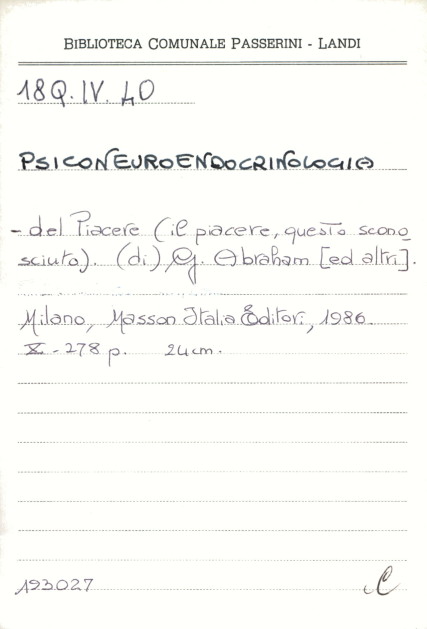 BIBLIOTECA COMUNALE PASSERINI - LANDI
18Q.IV.40
PSICONEUROENDOCRINOLOGIA
- del Piacere (il piacere, questo scono
sciuto). (di) G. Abraham [ed altri].
Milano, Masson Italia Editori, 1986.
X - 278 p. 24cm.
193027